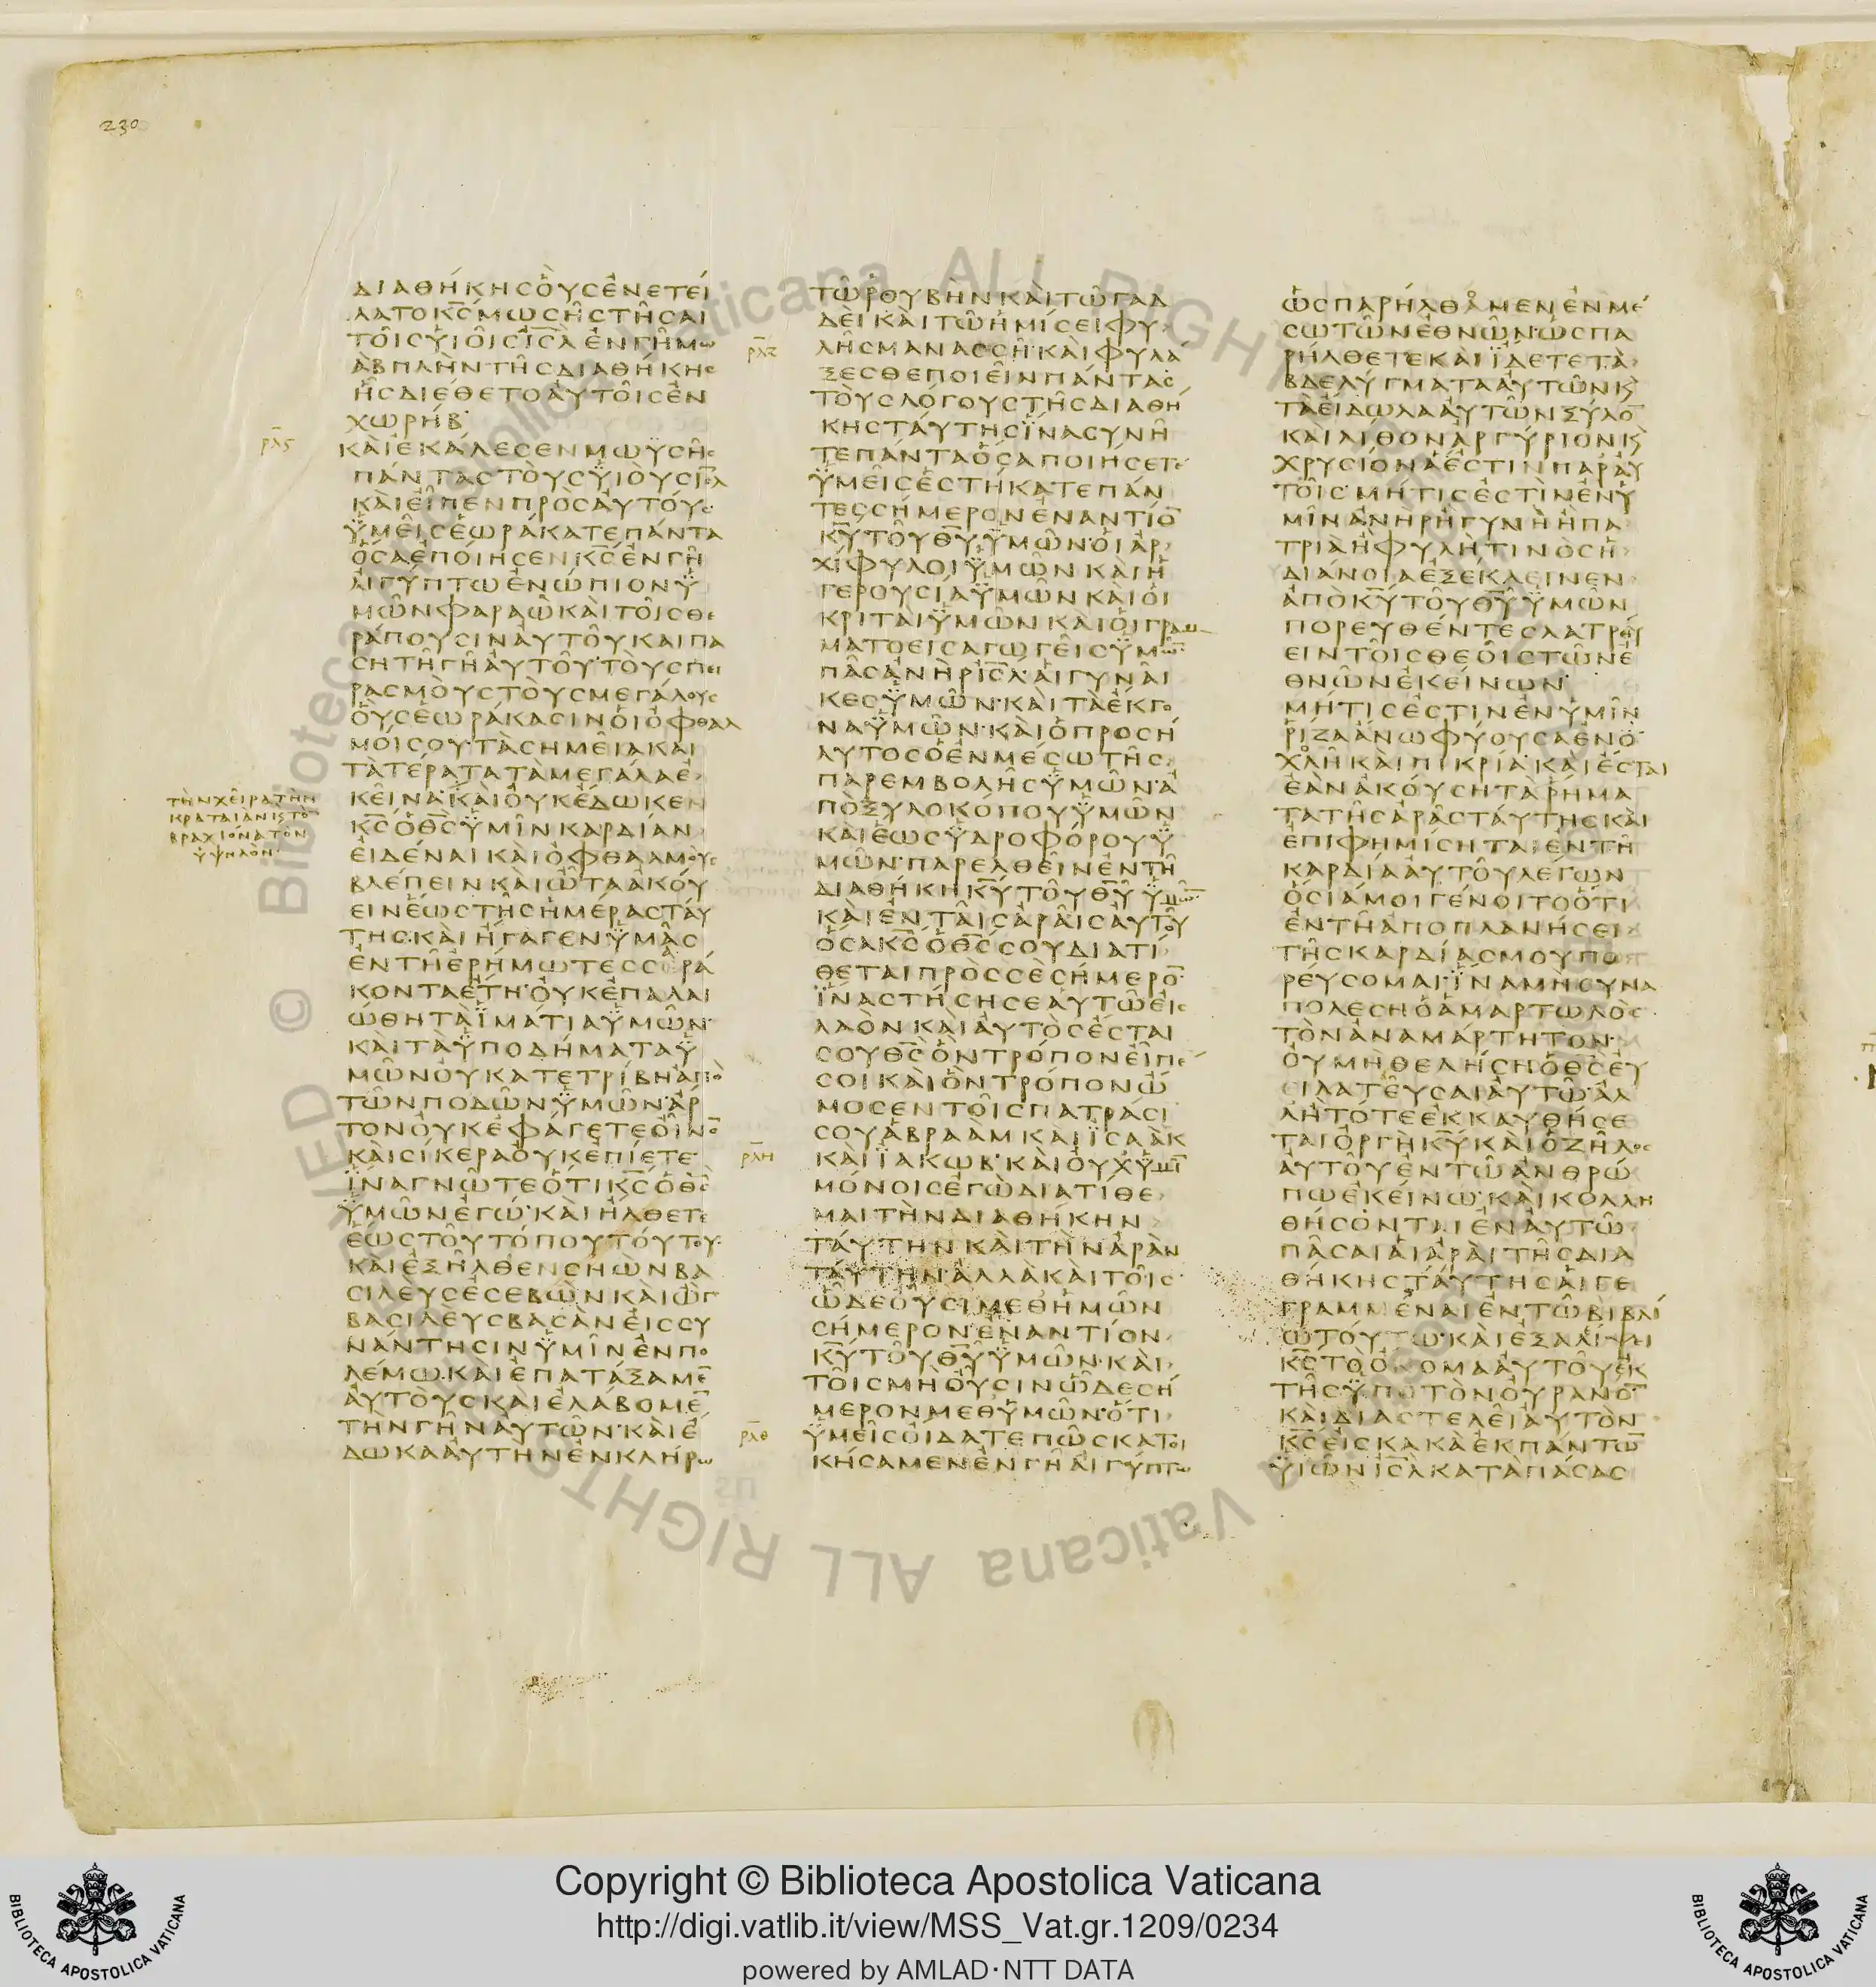 230
ΔΙΑΘΗΚΗΣΟΥΣΕΝΕΤΕΙ
ΛΑΤΟΚ̅Σ̅ΜΩΣΗΣΤΗΣΑΙ
ΤΟΙΣΥΙΟΙΣΙ̅Σ̅Λ̅ΕΝΓΗΜΩ
ΑΒΠΛΗΝΤΗΣΔΙΑΘΗΚΗΣ
ΗΣΔΙΕΘΕΤΟΑΥΤΟΙΣΕΝ
ΧΩΡΗΒ
ρλς
ΚΑΙΕΚΑΛΕΣΕΝΜΩΥΣΗΣ
ΠΑΝΤΑΣΤΟΥΣΥΙΟΥΣΙ̅Σ̅Λ̅
ΚΑΙΕΙΠΕΝΠΡΟΣΑΥΤΟΥΣ
ΥΜΕΙΣΕΩΡΑΚΑΤΕΠΑΝΤΑ
ΟΣΑΕΠΟΙΗΣΕΝΚ̅Σ̅ΕΝΓΗ
ΑΙΓΥΠΤΩΕΝΩΠΙΟΝΥ
ΜΩΝΦΑΡΑΩΚΑΙΤΟΙΣΘΕ
ΡΑΠΟΥΣΙΝΑΥΤΟΥΚΑΙΠΑ
ΣΗΤΗΓΗΑΥΤΟΥ·ΤΟΥΣΠΕΙ
ΡΑΣΜΟΥΣΤΟΥΣΜΕΓΑΛΟΥΣ
ΟΥΣΕΩΡΑΚΑΣΙΝΟΙΟΦΘΑΛ
ΜΟΙΣΟΥ·ΤΑΣΗΜΕΙΑΚΑΙ
ΤΑΤΕΡΑΤΑΤΑΜΕΓΑΛΑΕ
ΚΕΙΝΑ·ΚΑΙΟΥΚΕΔΩΚΕΝ
Κ̅Σ̅ΟΘ̅Σ̅ΥΜΙΝΚΑΡΔΙΑΝ
ΕΙΔΕΝΑΙΚΑΙΟΦΘΑΛΜΟΥΣ
ΒΛΕΠΕΙΝΚΑΙΩΤΑΑΚΟΥ
ΕΙΝΕΩΣΤΗΣΗΜΕΡΑΣΤΑΥ
ΤΗΣ·ΚΑΙΗΓΑΓΕΝΥΜΑΣ
ΕΝΤΗΕΡΗΜΩΤΕΣΣΕΡΑ
ΚΟΝΤΑΕΤΗ·ΟΥΚΕΠΑΛΑΙ
ΩΘΗΤΑΙΜΑΤΙΑΥΜΩΝ·
ΚΑΙΤΑΥΠΟΔΗΜΑΤΑΥ
ΜΩΝΟΥΚΑΤΕΤΡΙΒΗΑΠΟ
ΤΩΝΠΟΔΩΝΥΜΩΝ·ΑΡ
ΤΟΝΟΥΚΕΦΑΓΕΤΕΟΙΝΟ̅
ΚΑΙΣΙΚΕΡΑΟΥΚΕΠΙΕΤΕ·
ΙΝΑΓΝΩΤΕΟΤΙΚ̅Σ̅ΟΘ̅Σ̅
ΥΜΩΝΕΓΩ·ΚΑΙΗΛΘΕΤΕ
ΕΩΣΤΟΥΤΟΠΟΥΤΟΥΤΟΥ·
ΚΑΙΕΞΗΛΘΕΝΣΗΩΝΒΑ
ΣΙΛΕΥΣΕΣΕΒΩΝΚΑΙΩΓ
ΒΑΣΙΛΕΥΣΒΑΣΑΝΕΙΣΣΥ
ΝΑΝΤΗΣΙΝΥΜΙΝΕΝΠΟ
ΛΕΜΩ·ΚΑΙΕΠΑΤΑΞΑΜΕ̅
ΑΥΤΟΥΣΚΑΙΕΛΑΒΟΜΕ̅
ΤΗΝΓΗΝΑΥΤΩΝ·ΚΑΙΕ
ΔΩΚΑΑΥΤΗΝΕΝΚΛΗΡΩ
τὴν χεῖρα τὴν
κραταιὰν κ τὸν
βραχίονα τὸν
ὑψηλόν
ΤΩΡΟΥΒΗΝΚΑΙΤΩΓΑΔ
ΔΕΙΚΑΙΤΩΗΜΙΣΕΙΦΥ
ρλζ
ΛΗΣΜΑΝΑΣΣΗ·ΚΑΙΦΥΛΑ
ΞΕΣΘΕΠΟΙΕΙΝΠΑΝΤΑΣ
ΤΟΥΣΛΟΓΟΥΣΤΗΣΔΙΑΘΗ
ΚΗΣΤΑΥΤΗΣΙΝΑΣΥΝΗ
ΤΕΠΑΝΤΑΟΣΑΠΟΙΗΣΕΤΕ
ΥΜΕΙΣΕΣΤΗΚΑΤΕΠΑΝ
ΤΕΣΣΗΜΕΡΟΝΕΝΑΝΤΙΟ̅
Κ̅Υ̅ΤΟΥΘ̅Υ̅ΥΜΩΝ·ΟΙΑΡ
ΧΙΦΥΛΟΙΥΜΩΝΚΑΙΗ
ΓΕΡΟΥΣΙΑΥΜΩΝΚΑΙΟΙ
ΚΡΙΤΑΙΥΜΩΝΚΑΙΟΙΓΡΑΜ
ΜΑΤΟΕΙΣΑΓΩΓΕΙΣΥΜΩ̅
ΠΑΣΑΝΗΡΙ̅Σ̅Λ̅·ΑΙΓΥΝΑΙ
ΚΕΣΥΜΩΝ·ΚΑΙΤΑΕΚΓΟ
ΝΑΥΜΩΝ·ΚΑΙΟΠΡΟΣΗ
ΛΥΤΟΣΟΕΝΜΕΣΩΤΗΣ
ΠΑΡΕΜΒΟΛΗΣΥΜΩΝ·Α
ΠΟΞΥΛΟΚΟΠΟΥΥΜΩΝ
ΚΑΙΕΩΣΥΔΡΟΦΟΡΟΥΥ
ΜΩΝ·ΠΑΡΕΛΘΕΙΝΕΝΤΗ
ΔΙΑΘΗΚΗΚ̅Υ̅ΤΟΥΘ̅Υ̅ΥΜΩ̅
ΚΑΙΕΝΤΑΙΣΑΡΑΙΣΑΥΤΟΥ
ΟΣΑΚ̅Σ̅ΟΘ̅Σ̅ΣΟΥΔΙΑΤΙ
ΘΕΤΑΙΠΡΟΣΣΕΣΗΜΕΡΟ̅
ΙΝΑΣΤΗΣΗΣΕΑΥΤΩΕΙΣ
ΛΑΟΝΚΑΙΑΥΤΟΣΕΣΤΑΙ
ΣΟΥΘ̅Σ̅ΟΝΤΡΟΠΟΝΕΙΠΕ
ΣΟΙΚΑΙΟΝΤΡΟΠΟΝΩ
ΜΟΣΕΝΤΟΙΣΠΑΤΡΑΣΙ
ΣΟΥΑΒΡΑΑΜΚΑΙΙΣΑΑΚ
ρλη
ΚΑΙΙΑΚΩΒ·ΚΑΙΟΥΧΥΜΙ̅
ΜΟΝΟΙΣΕΓΩΔΙΑΤΙΘΕ
ΜΑΙΤΗΝΔΙΑΘΗΚΗΝ
ΤΑΥΤΗΝΚΑΙΤΗΝΑΡΑΝ
ΤΑΥΤΗΝ·ΑΛΛΑΚΑΙΤΟΙΣ
ΩΔΕΟΥΣΙΜΕΘΗΜΩΝ
ΣΗΜΕΡΟΝΕΝΑΝΤΙΟΝ
Κ̅Υ̅ΤΟΥΘ̅Υ̅ΥΜΩΝ·ΚΑΙ
ΤΟΙΣΜΗΟΥΣΙΝΩΔΕΣΗ
ΜΕΡΟΝΜΕΘΥΜΩΝ·ΟΤΙ
ρλθ
ΥΜΕΙΣΟΙΔΑΤΕΠΩΣΚΑΤΟΙ
ΚΗΣΑΜΕΝΕΝΓΗΑΙΓΥΠΤΩ
ΩΣΠΑΡΗΛΘΑΜΕΝΕΝΜΕ
ΣΩΤΩΝΕΘΝΩΝ·ΩΣΠΑ
ΡΗΛΘΕΤΕΚΑΙΙΔΕΤΕΤΑ
ΒΔΕΛΥΓΜΑΤΑΑΥΤΩΝΚ
ΤΑΕΙΔΩΛΑΑΥΤΩΝΞΥΛΟ̅
ΚΑΙΛΙΘΟΝΑΡΓΥΡΙΟΝΚ
ΧΡΥΣΙΟΝΑΕΣΤΙΝΠΑΡΑΥ
ΤΟΙΣ·ΜΗΤΙΣΕΣΤΙΝΕΝΥ
ΜΙΝΑΝΗΡΗΓΥΝΗΗΠΑ
ΤΡΙΑΗΦΥΛΗΤΙΝΟΣΗ
ΔΙΑΝΟΙΑΕΞΕΚΛΕΙΝΕΝ
ΑΠΟΚ̅Υ̅ΤΟΥΘ̅Υ̅ΥΜΩΝ
ΠΟΡΕΥΘΕΝΤΕΣΛΑΤΡΕΥ
ΕΙΝΤΟΙΣΘΕΟΙΣΤΩΝΕ
ΘΝΩΝΕΚΕΙΝΩΝ·
ΜΗΤΙΣΕΣΤΙΝΕΝΥΜΙΝ
ΡΙΖΑΑΝΩΦΥΟΥΣΑΕΝΟ
ΧΛΗΚΑΙΠΙΚΡΙΑ·ΚΑΙΕΣΤΑΙ
ΕΑΝΑΚΟΥΣΗΤΑΡΗΜΑ
ΤΑΤΗΣΑΡΑΣΤΑΥΤΗΣΚΑΙ
ΕΠΙΦΗΜΙΣΗΤΑΙΕΝΤΗ
ΚΑΡΔΙΑΑΥΤΟΥΛΕΓΩΝ
ΟΣΙΑΜΟΙΓΕΝΟΙΤΟΟΤΙ
ΕΝΤΗΑΠΟΠΛΑΝΗΣΕΙ
ΤΗΣΚΑΡΔΙΑΣΜΟΥΠΟ
ΡΕΥΣΟΜΑΙ·ΙΝΑΜΗΣΥΝΑ
ΠΟΛΕΣΗΟΑΜΑΡΤΩΛΟΣ
ΤΟΝΑΝΑΜΑΡΤΗΤΟΝ·
ΟΥΜΗΘΕΛΗΣΗΟΘ̅Σ̅ΕΥ
ΕΙΛΑΤΕΥΣΑΙΑΥΤΩ·ΑΛ
ΛΗΤΟΤΕΕΚΚΑΥΘΗΣΕ
ΤΑΙΟΡΓΗΚ̅Υ̅ΚΑΙΟΖΗΛΟΣ
ΑΥΤΟΥΕΝΤΩΑΝΘΡΩ
ΠΩΕΚΕΙΝΩ·ΚΑΙΚΟΛΛΗ
ΘΗΣΟΝΤΑΙΕΝΑΥΤΩ
ΠΑΣΑΙΑΙΑΡΑΙΤΗΣΔΙΑ
ΘΗΚΗΣΤΑΥΤΗΣΑΙΓΕ
ΓΡΑΜΜΕΝΑΙΕΝΤΩΒΙΒΛΙ
ΩΤΟΥΤΩ·ΚΑΙΕΞΑΛΙΨΕΙ
Κ̅Σ̅ΤΟΟΝΟΜΑΑΥΤΟΥΕΚ
ΤΗΣΥΠΟΤΟΝΟΥΡΑΝΟ̅
ΚΑΙΔΙΑΣΤΕΛΕΙΑΥΤΟΝ
Κ̅Σ̅ΕΙΣΚΑΚΑΕΚΠΑΝΤΩ̅
ΥΙΩΝΙ̅Σ̅Λ̅ΚΑΤΑΠΑΣΑΣ
Copyright © Biblioteca Apostolica Vaticana
http://digi.vatlib.it/view/MSS_Vat.gr.1209/0234
powered by AMLAD·NTT DATA
BIBLIOTECA APOSTOLICA VATICANA
BIBLIOTECA APOSTOLICA VATICANA